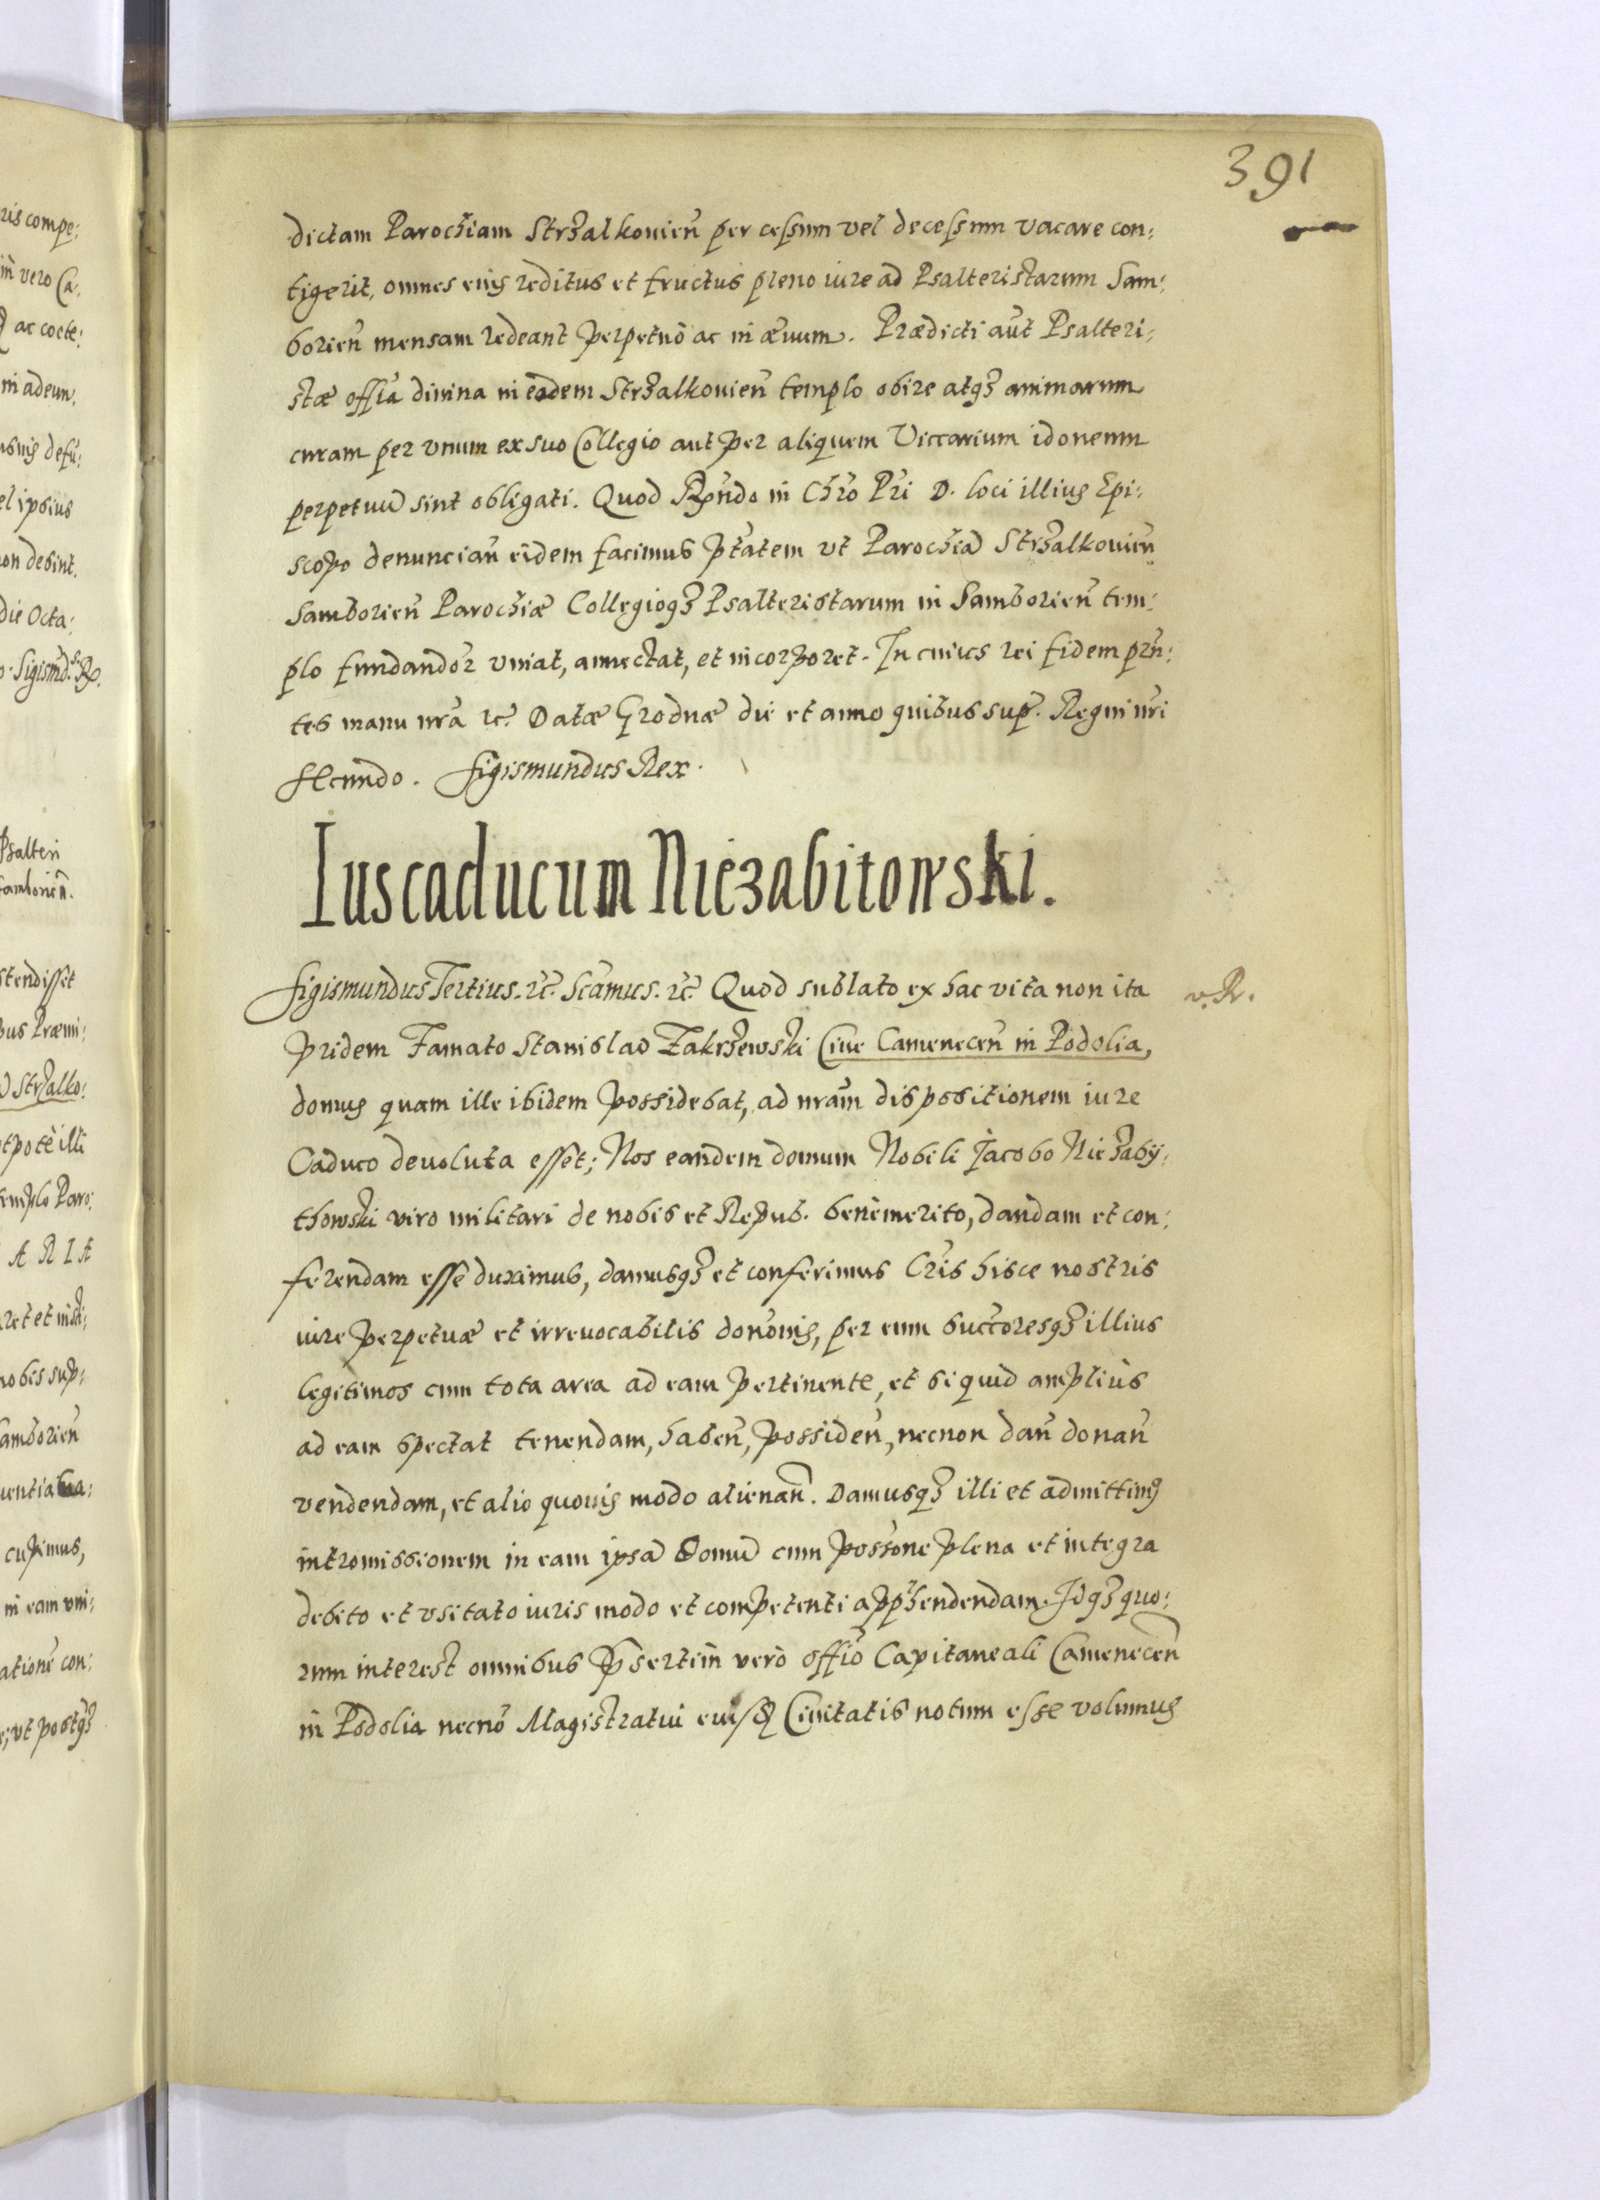 391
dictam Parochiam Strzalkouien̄ per cessum vel decessum vacare con:
tigerit, omnes eius reditus et fructus pleno iure ad Psalteristarum Sam:
borien̄ mensam redeant perpetuò ac in æuum. Prædicti aūt Psalteri:
stæ offīa diuina in eadem Strzalkouien̄ templo obire atqz animarum
curam per vnum ex suo Collegio aut per aliquem Viccarium idoneum
perpetuū sint obligati. Quod Rn̄do in Chrō Prī D. loci illius Epi:
scopo denuncian̄ eidem facimus ptātem vt Parochiā Strzalkouien̄
Samborien̄ Parochiæ Collegioqz Psalteristarum in Samborien̄ tem:
plo fundandor̄ vniat, annectat, et incorporet. In cuius rei fidem prn̄:
tes manu nrā rc̄. Datæ Grodnæ die et anno quibus sup̄. Regni nrī
secundo. Sigismundus Rex.
Ius caducum Niezabitowski.
Sigismundus Tertius. rc̄. Scāmus. rc̄. Quod sublato ex hac vita non ita
v. R.
pridem Famato Stanislao Zakrzewski Ciue Camenecen̄ in Podolia,
domus quam ille ibidem possidebat, ad nrām dispositionem iure
Caduco deuoluta esset; Nos eandem domum Nobili Jacobo Niezaby:
thowski viro militari de nobis et Repub. benèmerito, dandam et con:
ferendam esse duximus, damusqz et conferimus Lrīs hisce nostris
iure perpetuæ et irreuocabilis donōnis, per eum succoresqz illius
legitimos cum tota area ad eam pertinente, et si quid ampliùs
ad eam spectat tenendam, haben̄, possiden̄, necnon dan̄ donan̄
vendendam, et alio quouis modo alienan̄. Damusqz illi et admittimus
intromissionem in eam ipsā domū cum possōne plena et integra
debito et vsitato iuris modo et competenti apprehendendam. Idqz quo:
rum interest omnibus p̄sertim verò offīo Capitaneali Camenecen̄
in Podolia necnō Magistratui eiusdē Ciuitatis notum esse volumus